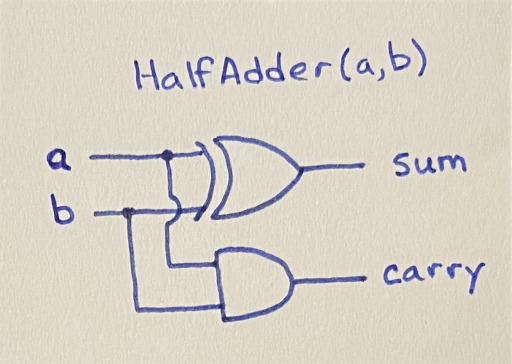 HalfAdder(a,b)
a
sum
b
carry